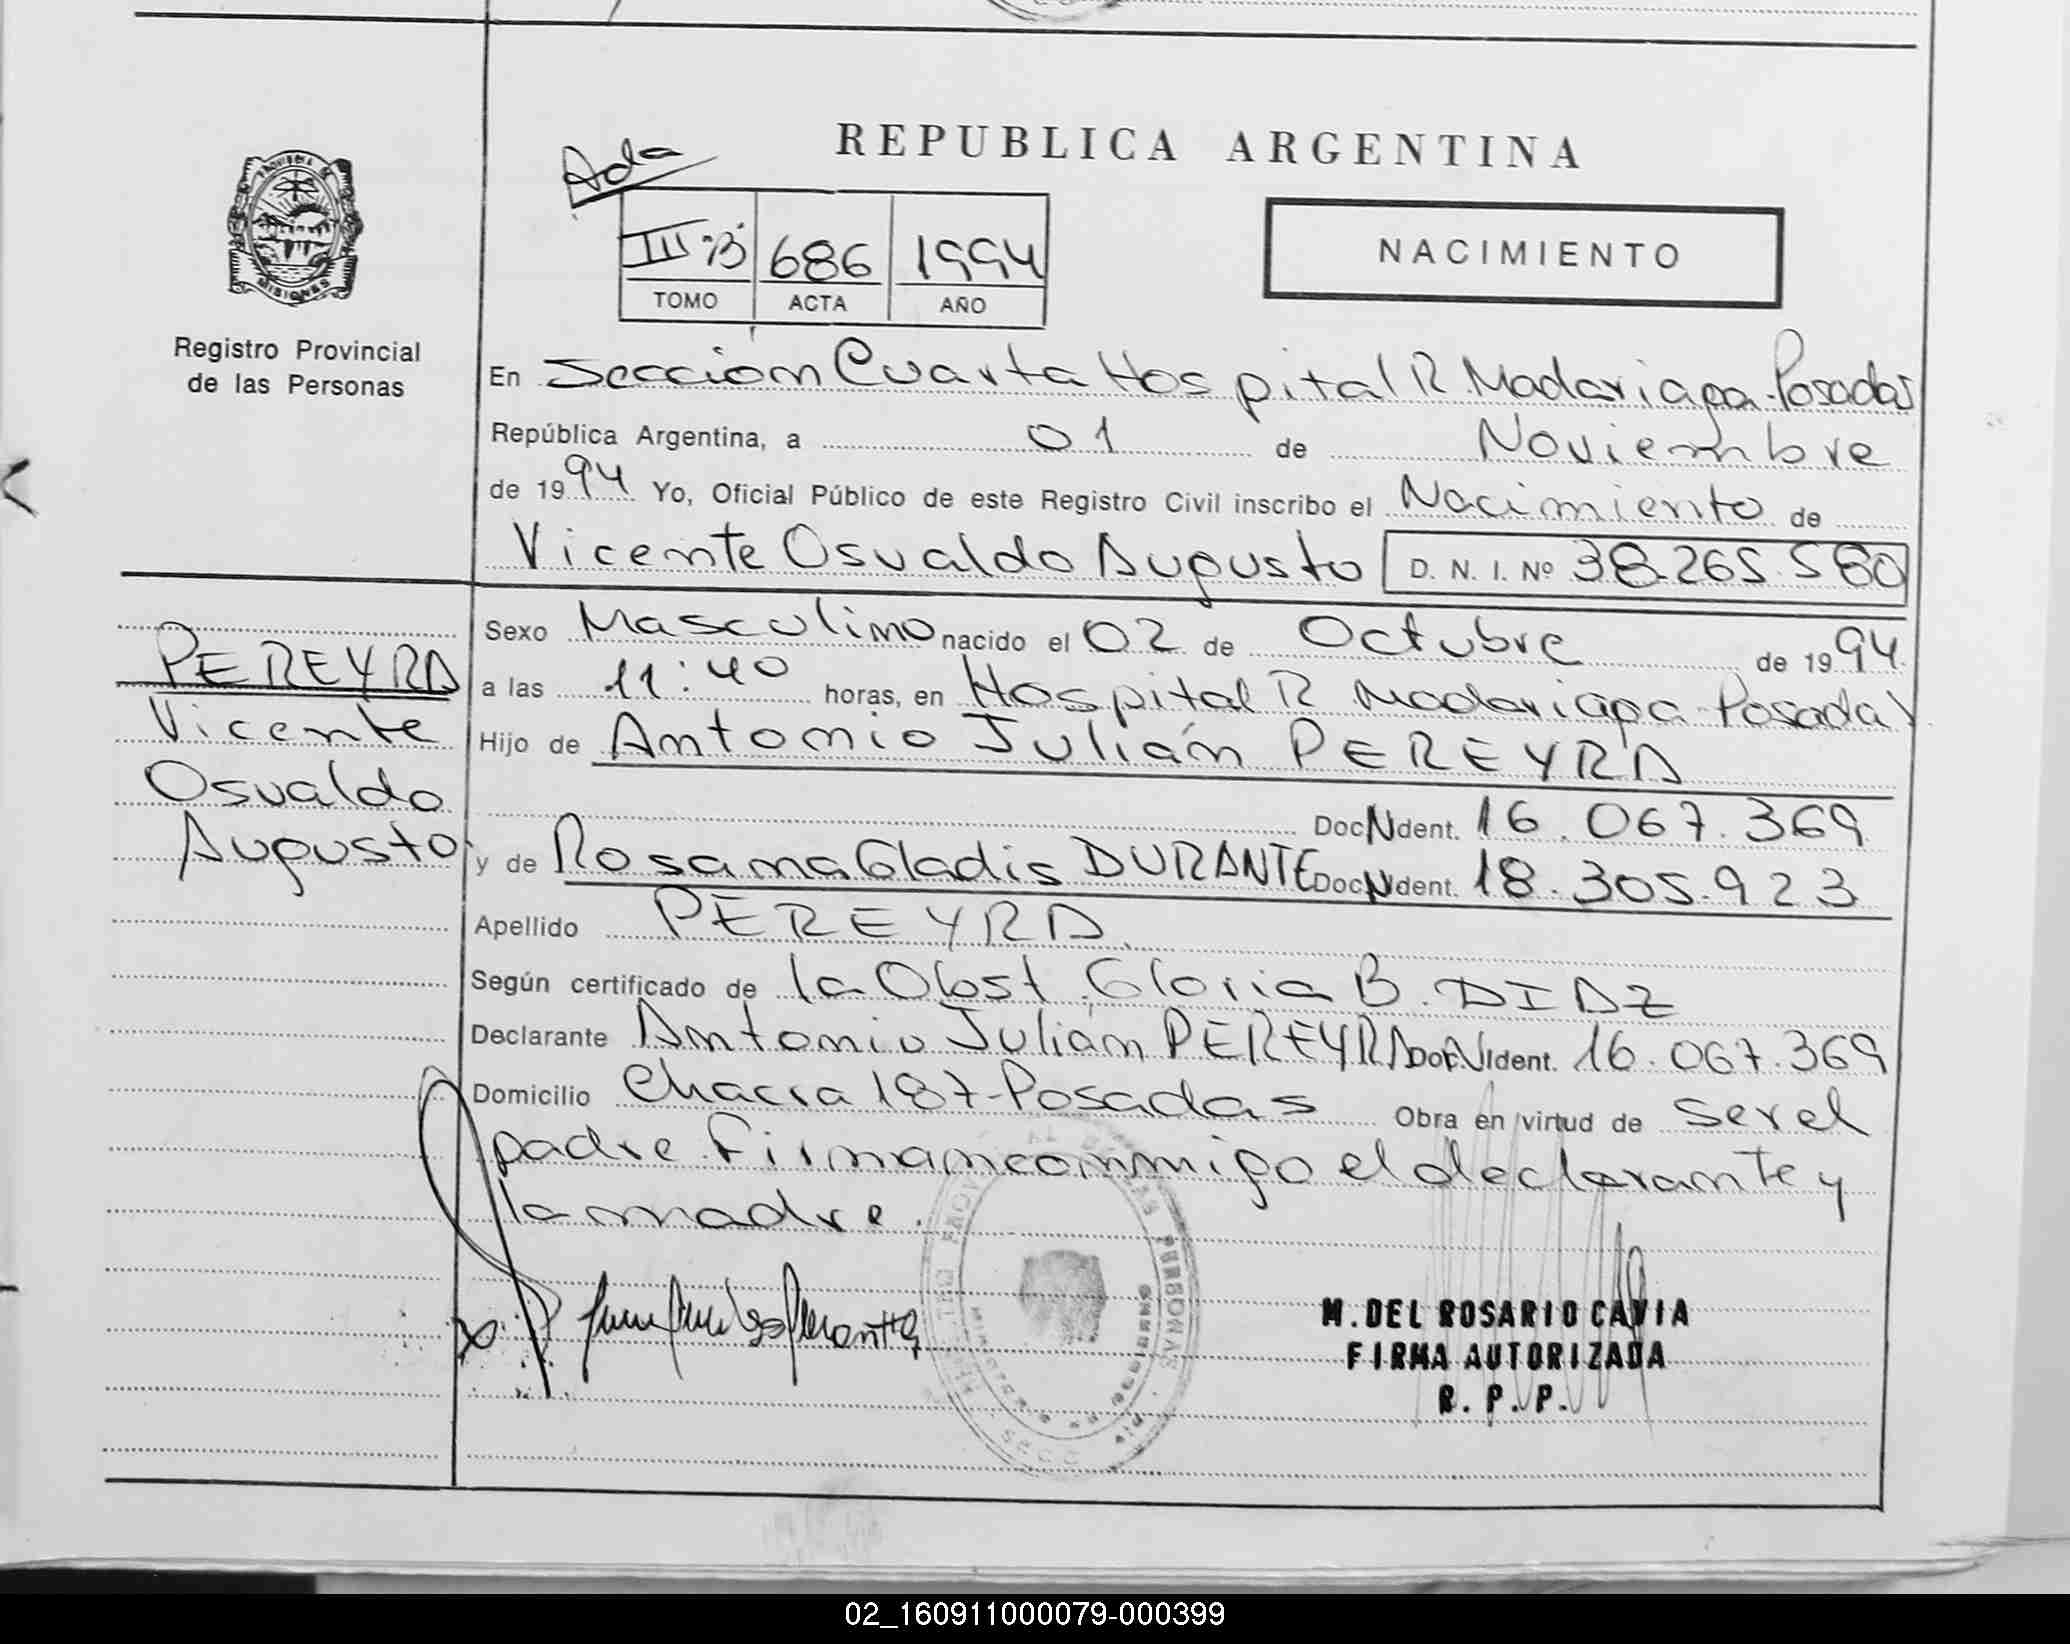 REPUBLICA ARGENTINA
Ada
III "B" 686 1994
TOMO ACTA AÑO
NACIMIENTO
PROVINCIA DE
MISIONES
Registro Provincial
de las Personas
En Sección Cuarta Hospital R. Madariaga - Posadas
República Argentina, a 01 de Noviembre
de 1994 Yo, Oficial Público de este Registro Civil inscribo el Nacimiento de
Vicente Osvaldo Augusto D. N. I. Nº 38.265.580
PEREYRA
Vicente
Osvaldo
Augusto
Sexo Masculino nacido el 02 de Octubre de 1994
a las 11:40 horas, en Hospital R. Madariaga Posadas
Hijo de Antonio Julián PEREYRA
Doc N Ident. 16.067.369
y de Rosana Gladis DURANTE Doc N Ident. 18.305.923
Apellido PEREYRA
Según certificado de la Obst. Gloria B. DIAZ
Declarante Antonio Julián PEREYRA Doc N Ident. 16.067.369
Domicilio Chacra 187 - Posadas Obra en virtud de ser el
padre. Firman conmigo el declarante y
la madre.
M. DEL ROSARIO CAVIA
FIRMA AUTORIZADA
R. P. P.
02_160911000079-000399